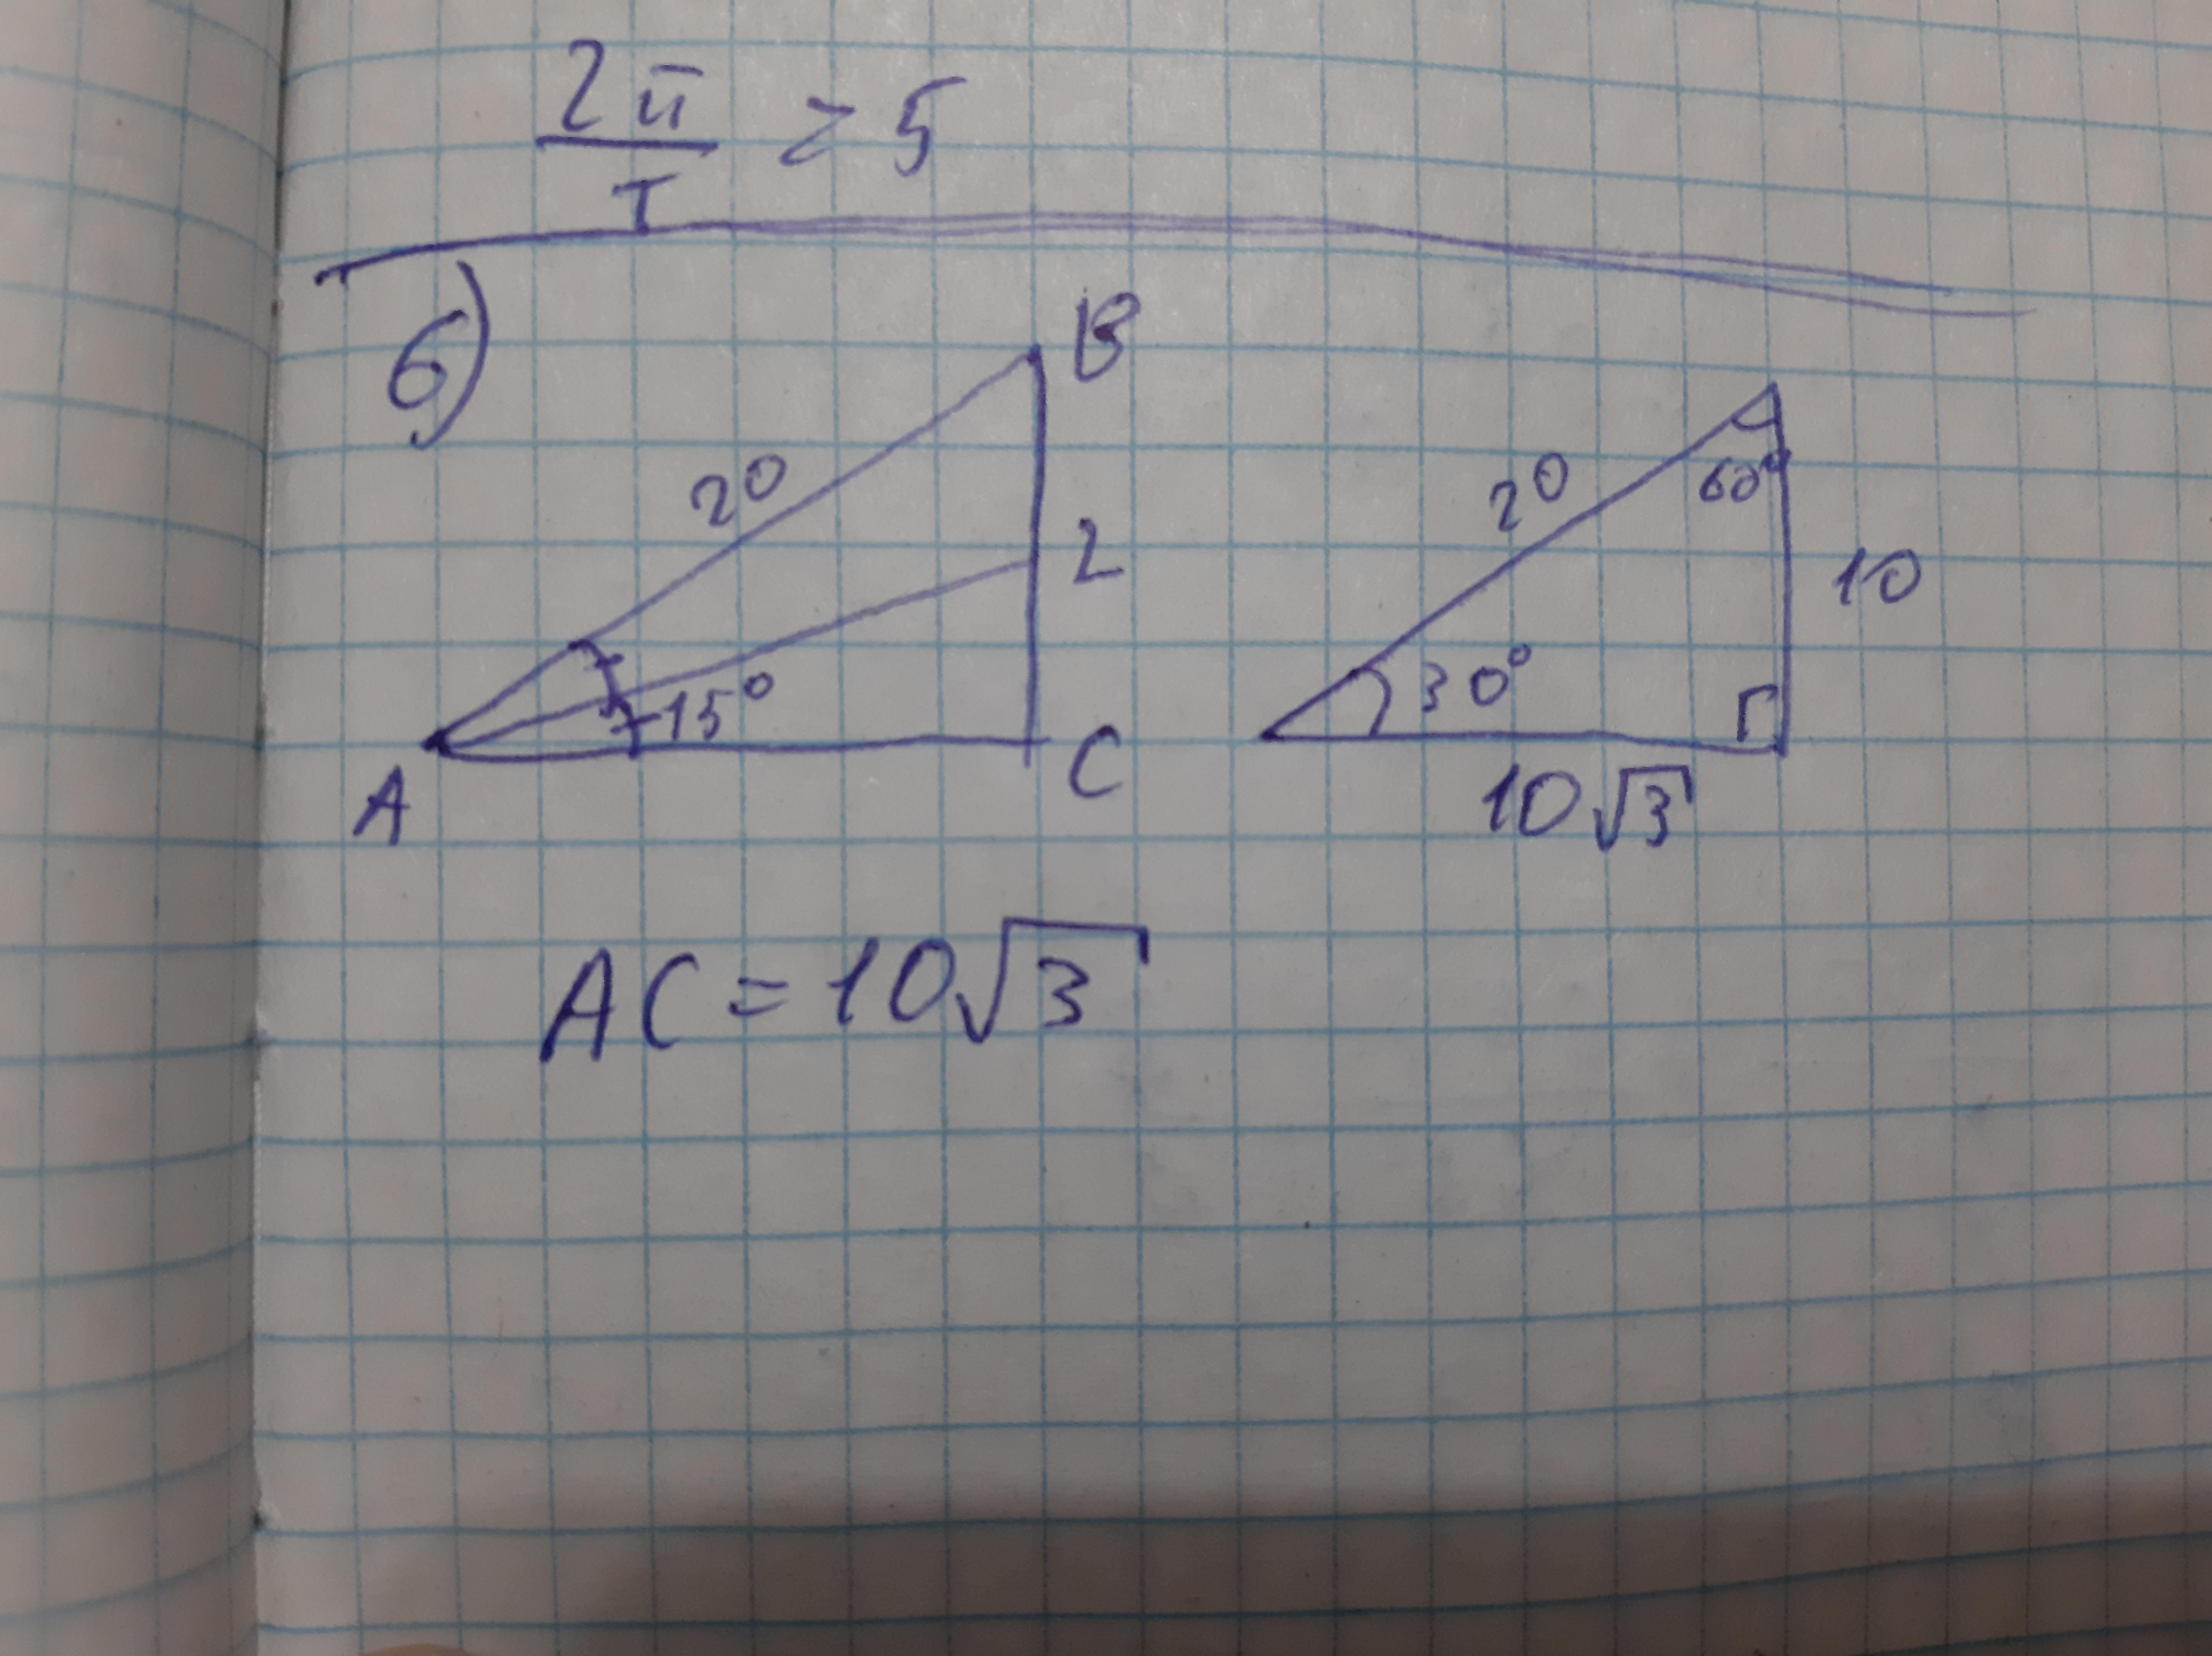 2π
T
≥ 5
6)
B
20
L
15°
A
C
20
60°
10
30°
10√3
AC = 10√3